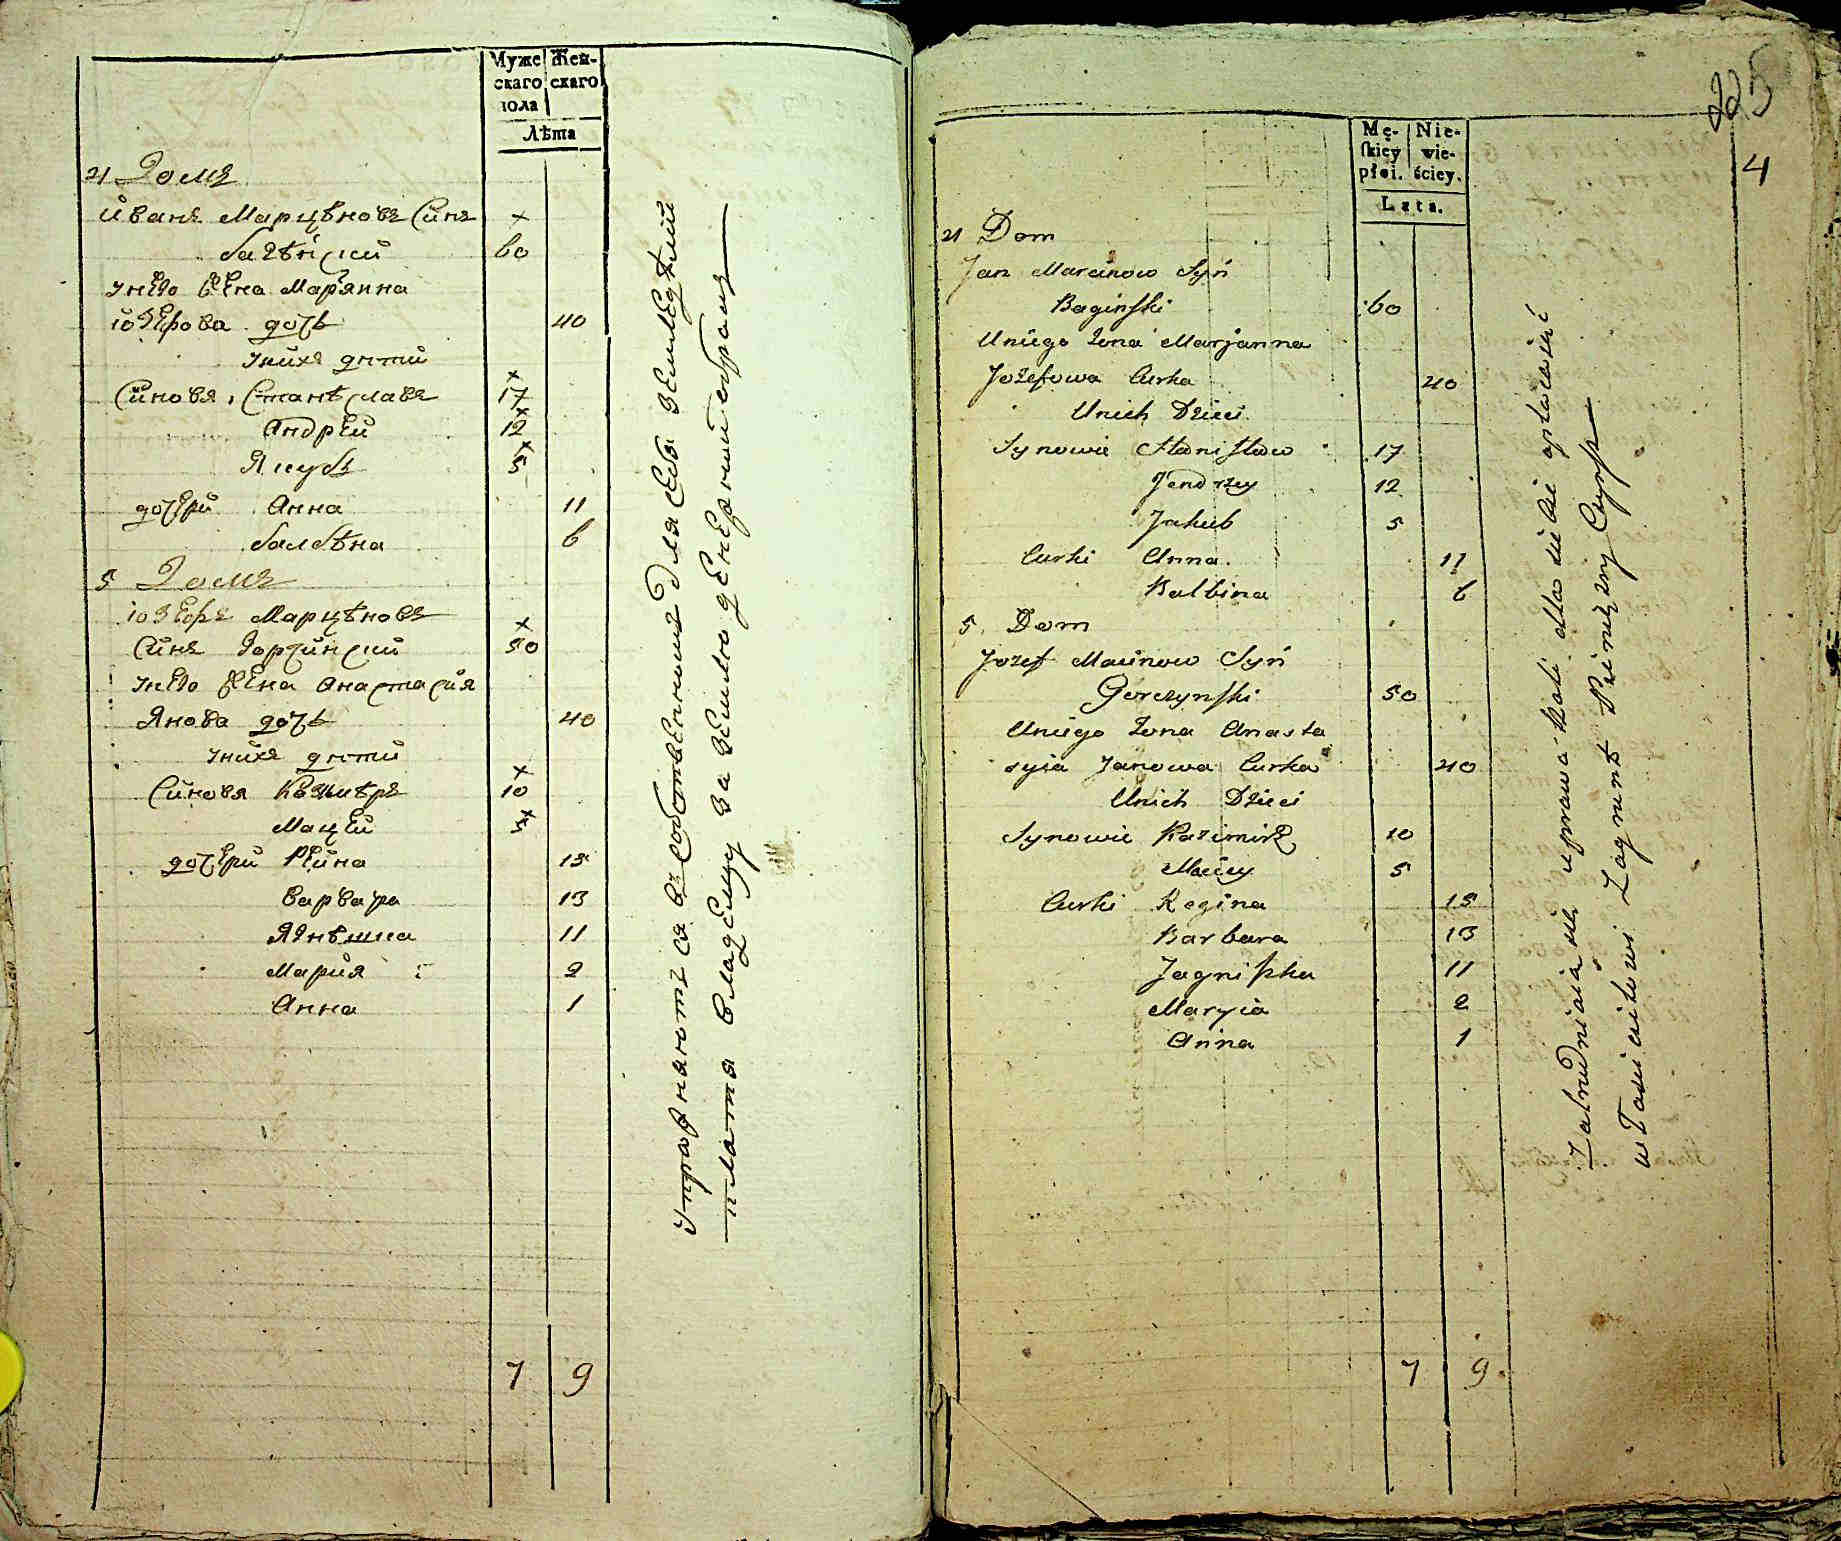 Муже Жен-
скаго скаго
пола
Лѣта
4 Домъ
Иванъ Марцѣновъ Синъ ×
Багѣнский 60
Унего Жена Марянна
Іозефова дочь 40
Унихъ дѣти
Синовя Станѣславъ × 17
Андрей × 12
Якубъ × 5
дочери Анна 11
Балбѣна 6
5 Домъ
Іозефъ Марцѣновъ ×
Синъ Горчинский 50
Унего Жена Анастасия
Янова дочь 40
Унихъ дѣти
Синовя Казимѣръ × 10
Мацей × 5
дочери Рейна 15
Варвара 13
Ягнѣшка 11
Мария 2
Анна 1
7 9
Упражняются въ собственнимъ для себя земледѣлий
платя владецу за землю денежний оброкъ
225
4
Mę- Nie-
skiey wie-
płci. ściey.
Lata.
4 Dom
Jan Marcinow Syń
Baginski 60
Uniego Zona Marjanna
Jozefowa Curka 40
Unich Dzieci
Synowie Stanisław 17
Jendrzey 12
Jakub 5
Curki Anna 11
Balbina 6
5 Dom
Jozef Macinow Syń
Gorczynski 50
Uniego Zona Anasta
syia Janowa Curka 40
Unich Dzieci
Synowie Kazimirz 10
Maciey 5
Curki Regina 15
Barbara 13
Jagniszka 11
Maryia 2
Anna 1
7 9
Zatrudniaia się uprawa Roli dla siebie opłacaiąc
właścicielowi Zagrunt Pieniężny Czynsz